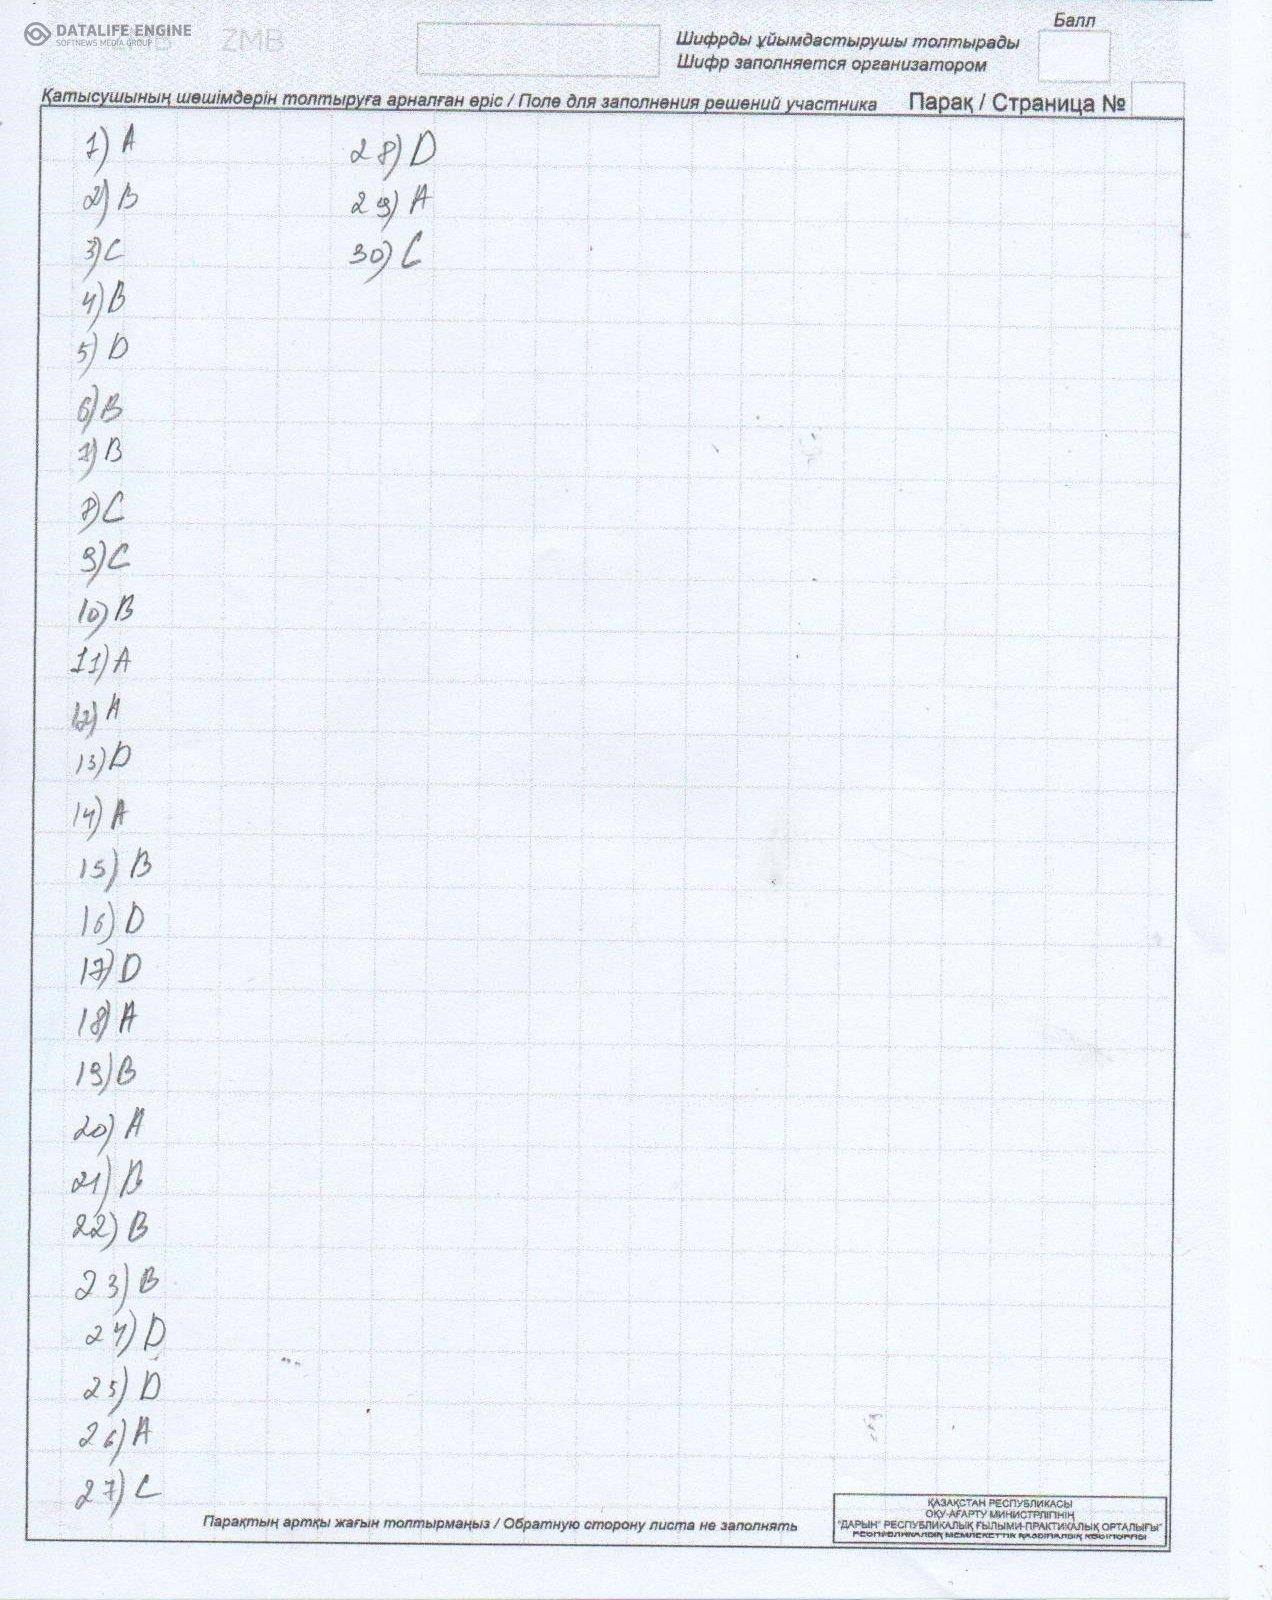 DATALIFE ENGINE
SOFTNEWS MEDIA GROUP
ZMB
Балл
Шифрды ұйымдастырушы толтырады
Шифр заполняется организатором
Қатысушының шешімдерін толтыруға арналған өріс / Поле для заполнения решений участника
Парақ / Страница №
1) A
2) B
3) C
4) B
5) D
6) B
7) B
8) C
9) C
10) B
11) A
12) A
13) D
14) A
15) B
16) D
17) D
18) A
19) B
20) A
21) B
22) B
23) B
24) D
25) D
26) A
27) C
28) D
29) A
30) C
Парақтың артқы жағын толтырмаңыз / Обратную сторону листа не заполнять
ҚАЗАҚСТАН РЕСПУБЛИКАСЫ
ОҚУ-АҒАРТУ МИНИСТРЛІГІНІҢ
"ДАРЫН" РЕСПУБЛИКАЛЫҚ ҒЫЛЫМИ-ПРАКТИКАЛЫҚ ОРТАЛЫҒЫ"
РЕСПУБЛИКАЛЫҚ МЕМЛЕКЕТТІК ҚАЗЫНАЛЫҚ КӘСІПОРНЫ